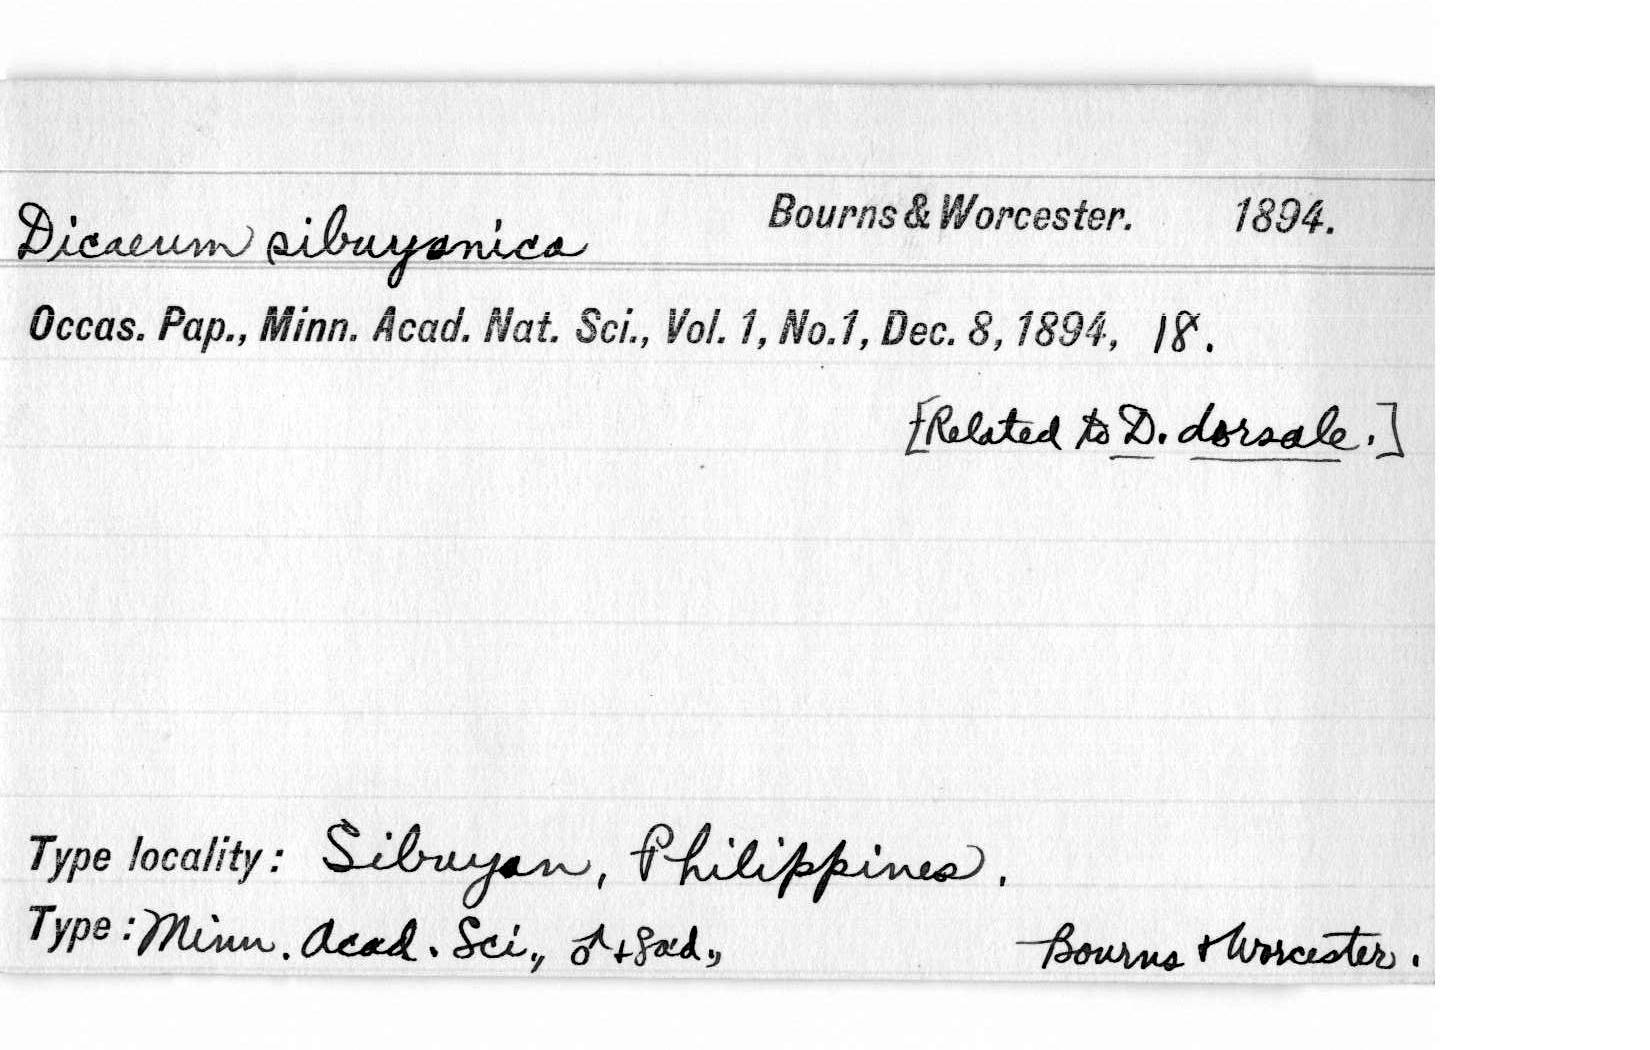 Dicaeum sibuyanica Bourns & Worcester. 1894.
Occas. Pap., Minn. Acad. Nat. Sci., Vol. 1, No.1, Dec. 8, 1894, 18.
[Related to D. dorsale.]
Type locality: Sibuyan, Philippines.
Type: Minn. Acad. Sci., ♂ + ♀ ad., Bourns & Worcester.